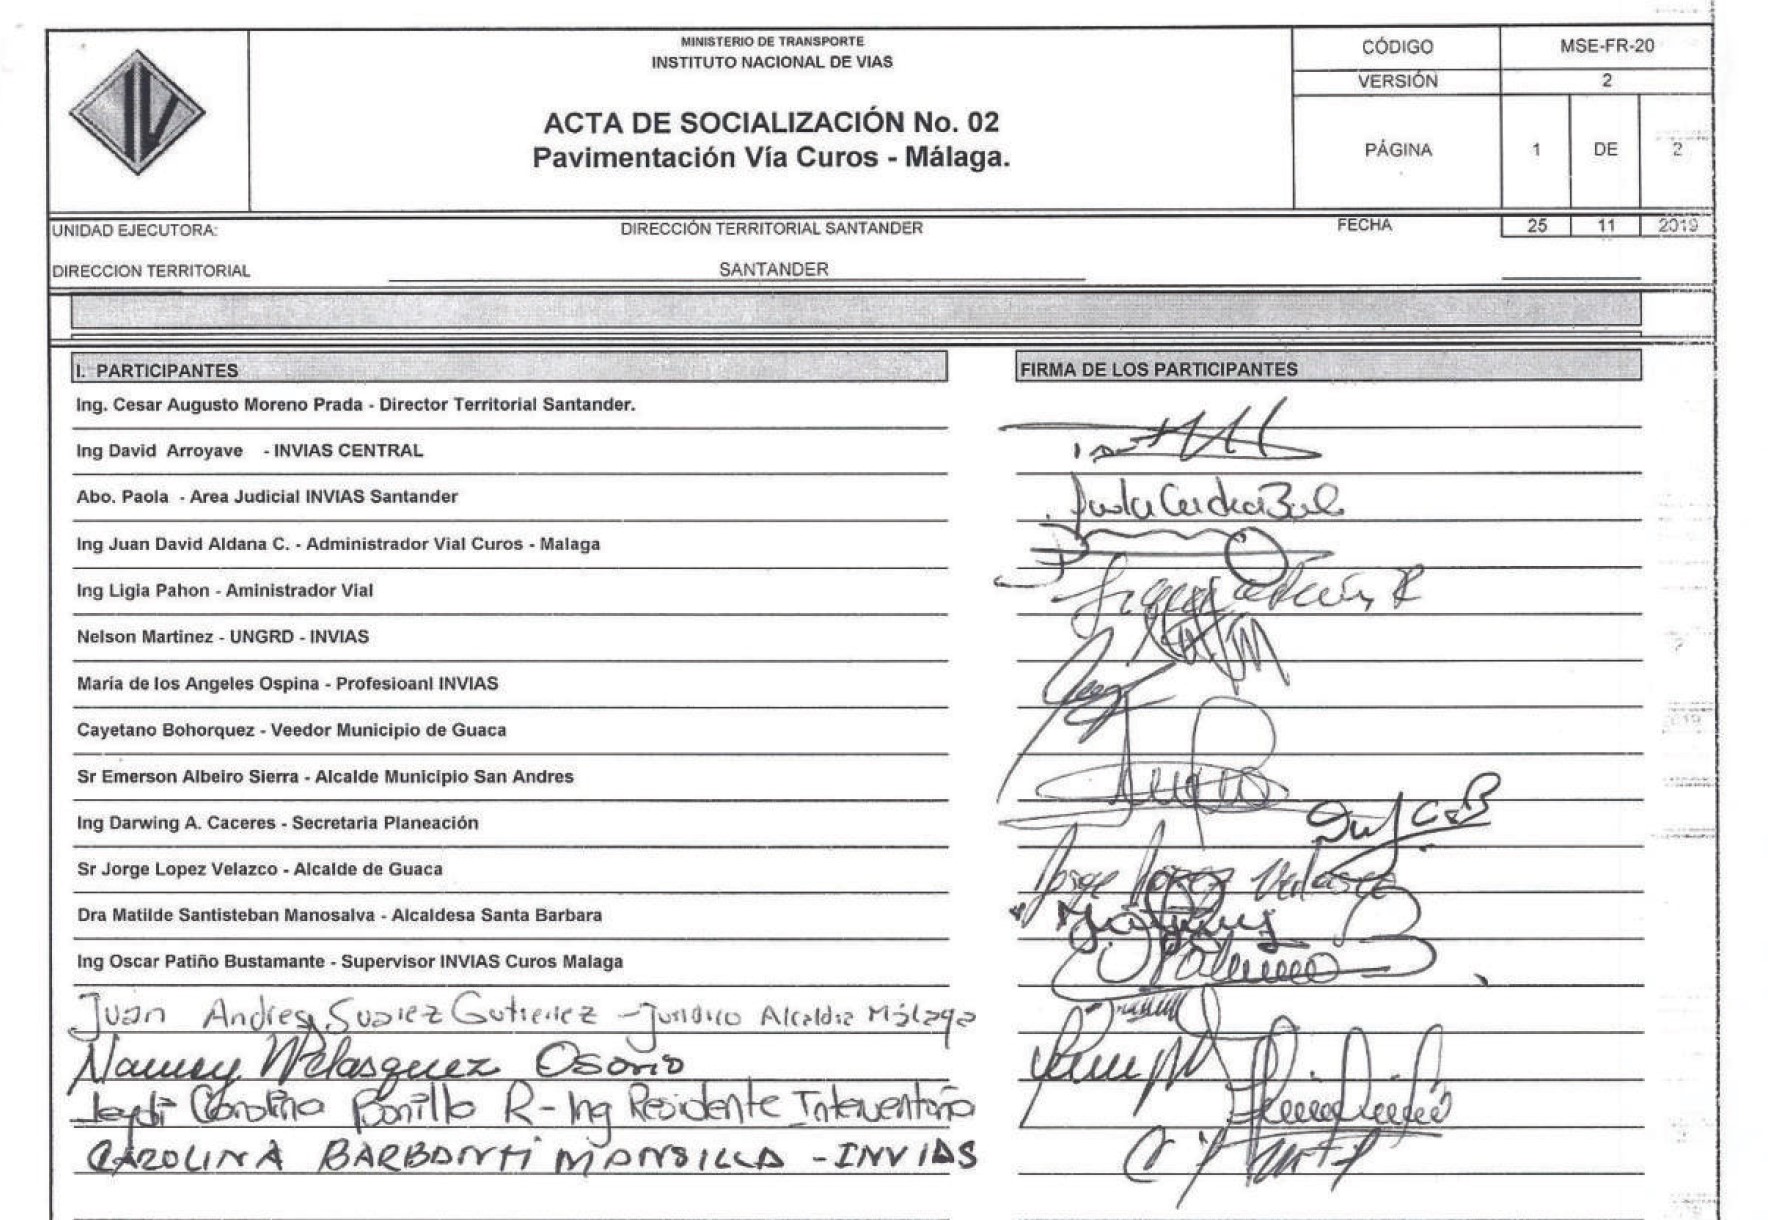 MINISTERIO DE TRANSPORTE
INSTITUTO NACIONAL DE VIAS
ACTA DE SOCIALIZACIÓN No. 02
Pavimentación Vía Curos - Málaga.
CÓDIGO MSE-FR-20
VERSIÓN 2
PÁGINA 1 DE 2
UNIDAD EJECUTORA: DIRECCIÓN TERRITORIAL SANTANDER FECHA 25 11 2019
DIRECCION TERRITORIAL SANTANDER
I. PARTICIPANTES FIRMA DE LOS PARTICIPANTES
Ing. Cesar Augusto Moreno Prada - Director Territorial Santander.
Ing David Arroyave - INVIAS CENTRAL
Abo. Paola - Area Judicial INVIAS Santander
Ing Juan David Aldana C. - Administrador Vial Curos - Malaga
Ing Ligia Pahon - Aministrador Vial
Nelson Martinez - UNGRD - INVIAS
Maria de los Angeles Ospina - Profesioanl INVIAS
Cayetano Bohorquez - Veedor Municipio de Guaca
Sr Emerson Albeiro Sierra - Alcalde Municipio San Andres
Ing Darwing A. Caceres - Secretaria Planeación
Sr Jorge Lopez Velazco - Alcalde de Guaca
Jorge López Velasco
Dra Matilde Santisteban Manosalva - Alcaldesa Santa Barbara
Ing Oscar Patiño Bustamante - Supervisor INVIAS Curos Malaga
Juan Andres Suarez Gutierrez - Juridico Alcaldia Málaga
Nancy Velasquez Osorio
Leydi Carolina Bonilla R - Ing Residente Interventoria
CAROLINA BARBANTI MANSILLA - INVIAS